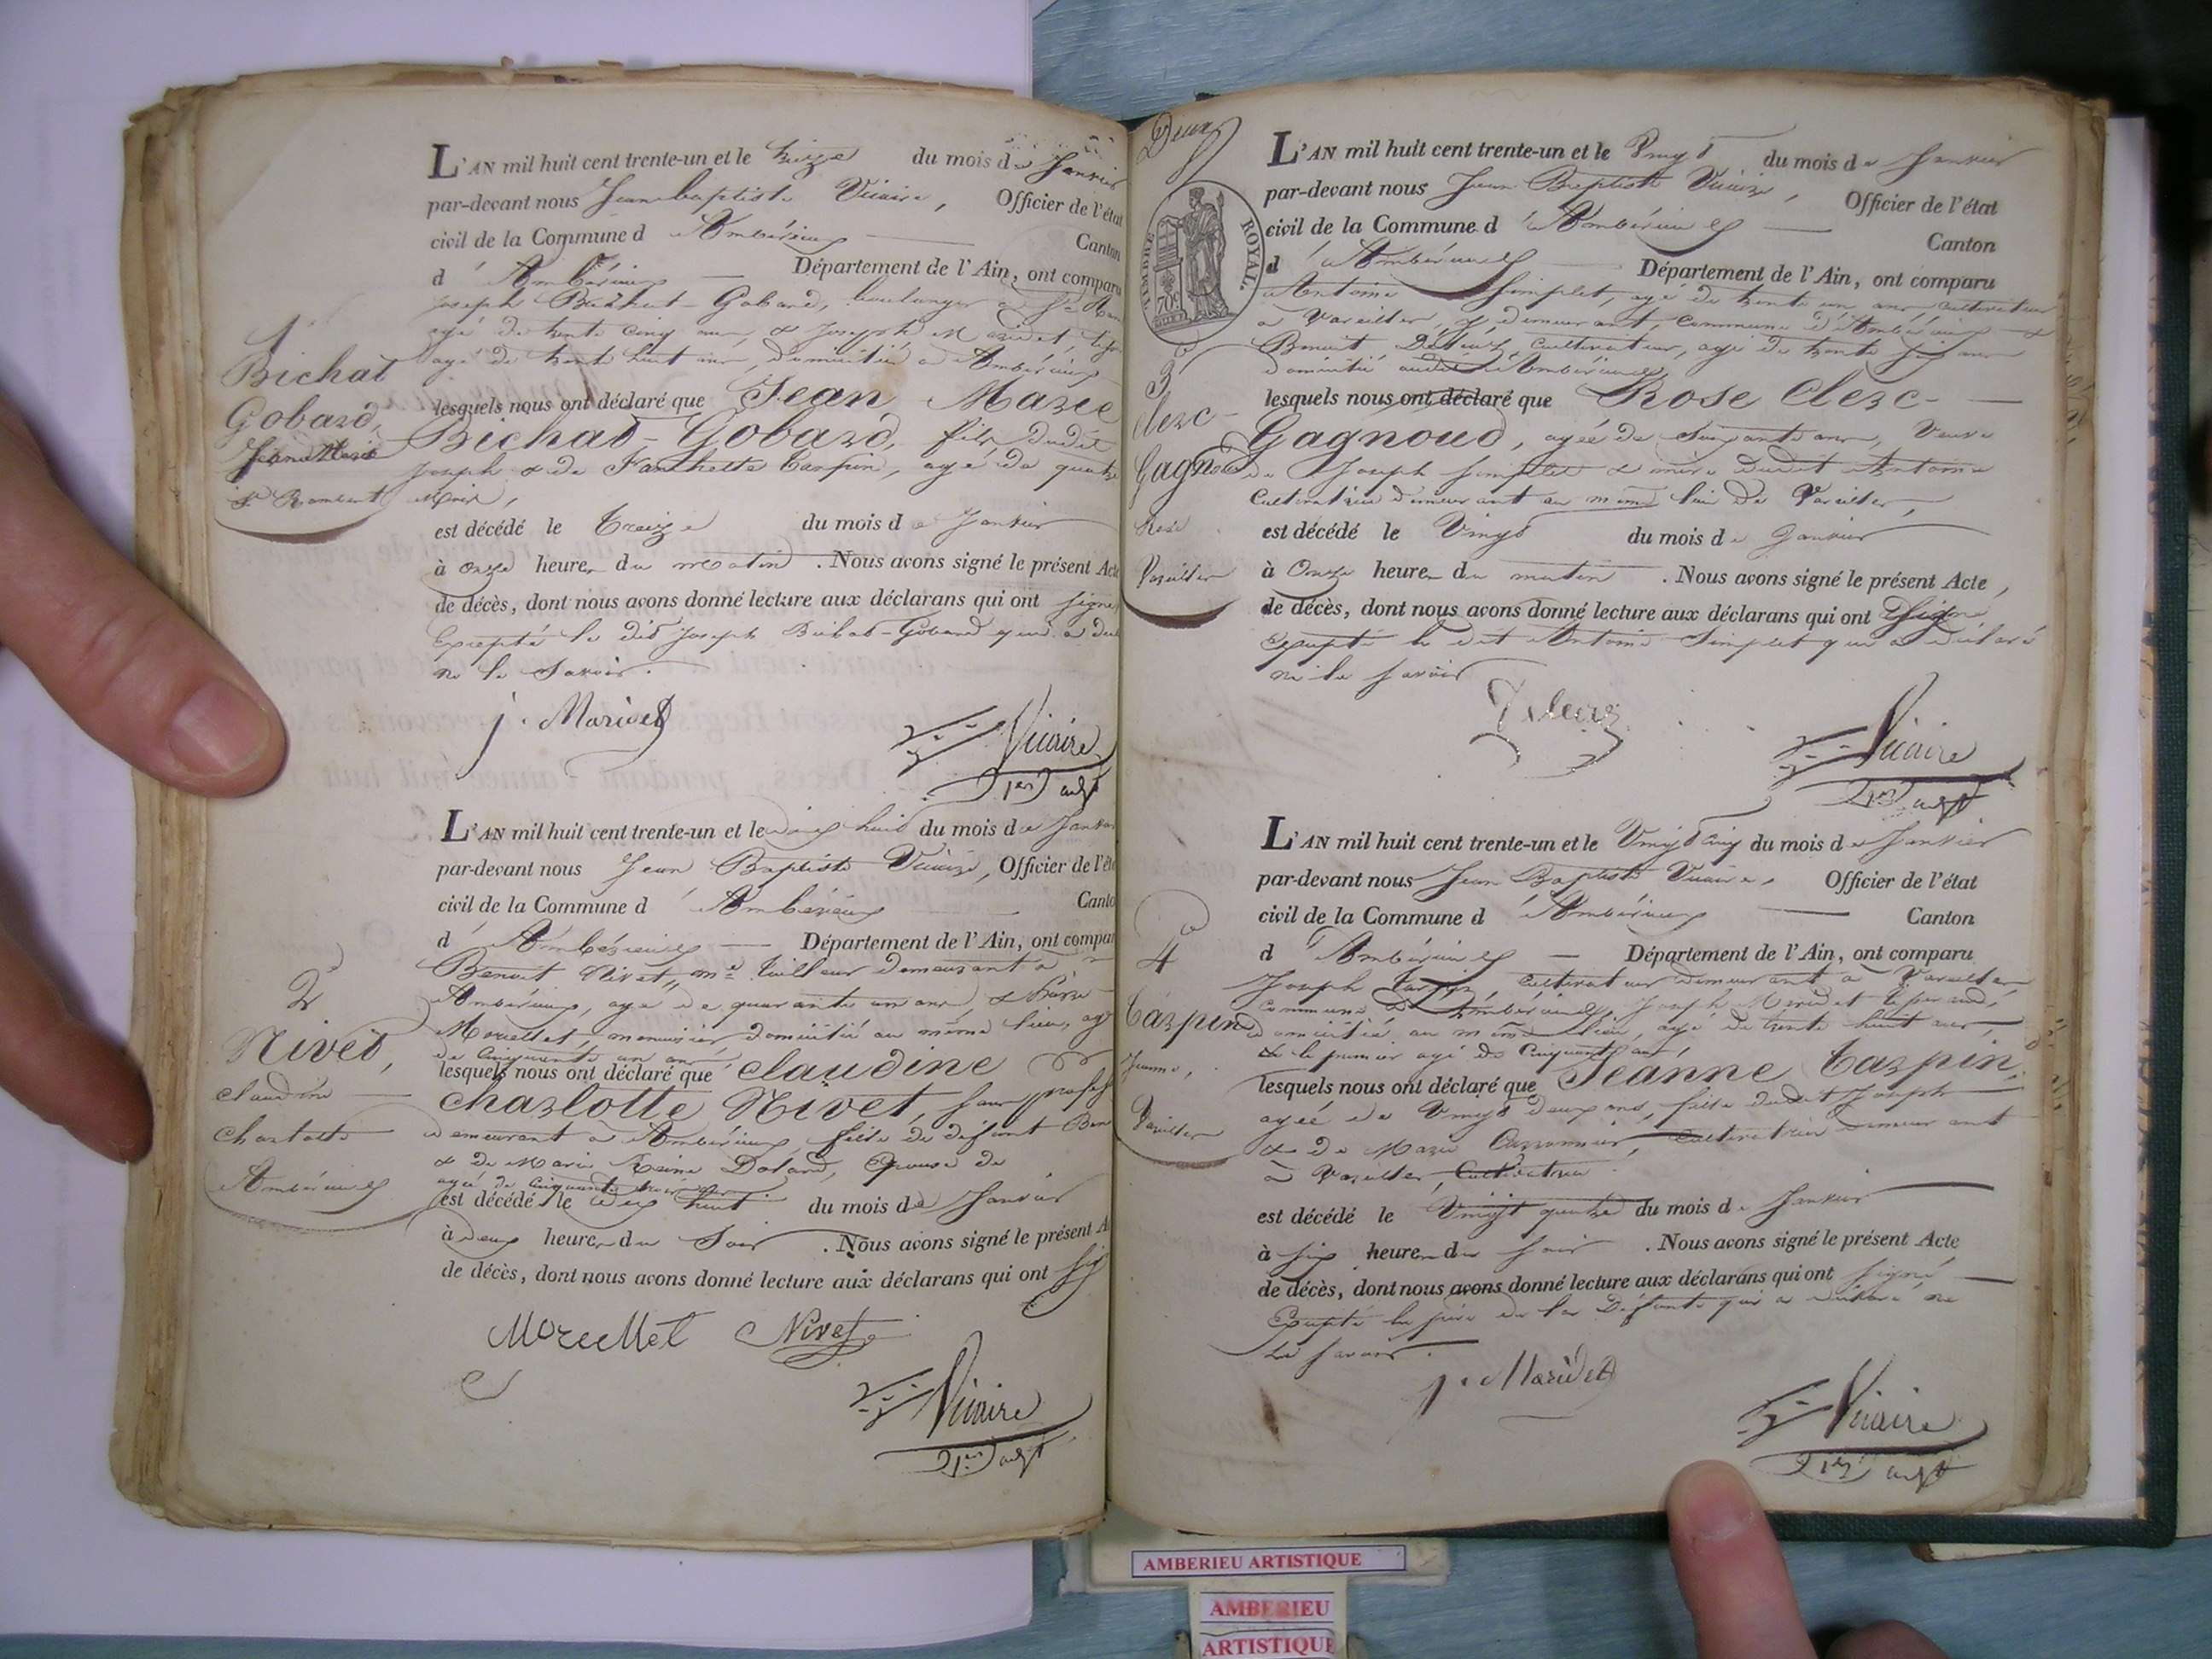 1
Bichat
Gobard,
Jean Marie
St Rambert
L'AN mil huit cent trente-un et le treize du mois de Janvier
par-devant nous Jean baptiste Vicaire, Officier de l'état
civil de la Commune d'Ambérieux Canton
d'Ambérieux Département de l'Ain, ont comparu
Joseph Bichat-Gobard, boulanger à St
agé de trente cinq ans, & Joseph Maridet,
agé de trente huit ans, domicilié à Ambérieux
lesquels nous ont déclaré que Jean Marie
Bichat-Gobard, fils dudit
Joseph & de Fanchette Tarpin, agé de quatre
mois,
est décédé le treize du mois de Janvier
à onze heures du matin. Nous avons signé le présent Acte
de décès, dont nous avons donné lecture aux déclarans qui ont signé
Excepté le dit Joseph Bichat-Gobard qui a
ne le Savoir.
j. Maridet
Vicaire
1er adjt
2
Nivet,
claudine
charlotte
Ambérieux
L'AN mil huit cent trente-un et le dix huit du mois de Janvier
par-devant nous Jean Baptiste Vicaire, Officier de l'état
civil de la Commune d'Ambérieux Canton
d'Ambérieux Département de l'Ain, ont comparu
Benoit Nivet, me tailleur demeurant à
Ambérieux, agé de quarante un ans, & Pierre
Morellet, menuisier domicilié au même lieu, agé
de Cinquante un ans
lesquels nous ont déclaré que claudine
charlotte Nivet, sans profess
demeurant à Ambérieux fille de défunt Ben
& de Marie Reine Dolard, Epouse de
agé de Cinquante trois ans
est décédé le dix huit du mois de Janvier
à deux heures du Soir. Nous avons signé le présent A
de décès, dont nous avons donné lecture aux déclarans qui ont sig
Morellet Nivet
Vicaire
1er adjt
Deux
TIMBRE ROYAL.
70c
3
clerc-
Gagnoud
Rose
Vareilles
L'AN mil huit cent trente-un et le Vingt du mois de Janvier
par-devant nous Jean Baptiste Vicaire, Officier de l'état
civil de la Commune d'Ambérieux Canton
d'Ambérieux Département de l'Ain, ont comparu
Antoine Simplet, agé de trente un ans, cultivateur
à Vareilles, y demeurant, commune d'Ambérieux &
Benoit cultivateur, agé de trente six ans
domicilié audit Ambérieux
lesquels nous ont déclaré que Rose Clerc-
Gagnoud, agée de Soixante ans, Veuve
de Joseph Simplet & mère dudit Antoine
Cultivatrice demeurant au même lieu de Vareilles,
est décédé le Vingt du mois de Janvier
à Onze heures du matin. Nous avons signé le présent Acte,
de décès, dont nous avons donné lecture aux déclarans qui ont signé
excepté le dit Antoine Simplet qui a déclaré
ne le savoir
Vicaire
1er adjt
4
Tarpin
Jeanne,
Vareilles
L'AN mil huit cent trente-un et le Vingt Cinq du mois de Janvier
par-devant nous Jean Baptiste Vicaire, Officier de l'état
civil de la Commune d'Ambérieux Canton
d'Ambérieux Département de l'Ain, ont comparu
Joseph Tarpin, cultivateur demeurant à Vareilles
commune d'Ambérieux, Joseph Maridet
domicilié au même lieu, agé de trente huit ans,
& le premier agé de Cinquante ans,
lesquels nous ont déclaré que Jeanne Tarpin,
agée de Vingt deux ans, fille dudit Joseph
& de Marie cultivatrice demeurant
à Vareilles, Cultivatrice
est décédé le Vingt quatre du mois de Janvier
à six heures du soir. Nous avons signé le présent Acte
de décès, dont nous avons donné lecture aux déclarans qui ont signé
Excepté le père de la Défunte qui a déclaré ne
le savoir.
j. Maridet
Vicaire
1er adjt
AMBERIEU ARTISTIQUE
AMBERIEU
ARTISTIQUE